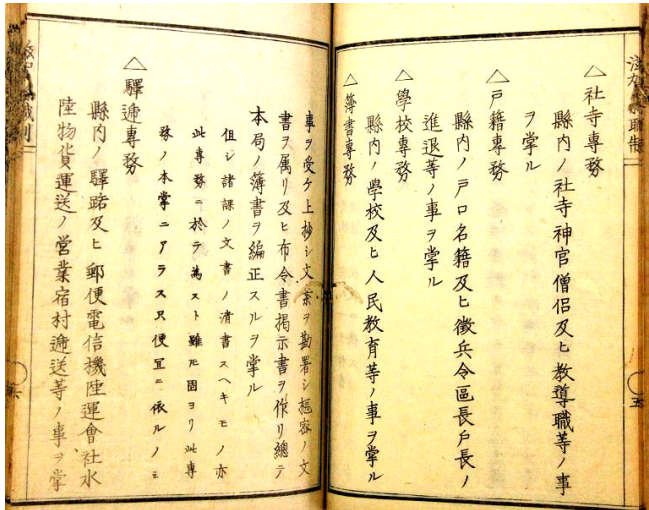 △社寺専務
縣内ノ社寺神官僧侶及ヒ教導職等ノ事
ヲ掌ル
△戸籍専務
縣内ノ戸口名籍及ヒ徴兵令區長戸長ノ
進退等ノ事ヲ掌ル
△學校専務
縣内ノ學校及ヒ人民教育等ノ事ヲ掌ル
△簿書専務
五
事ヲ受ケ上抄シ文案ヲ勘署シ樞密ノ文
書ヲ属リ及ヒ布令書揭示書ヲ作リ總テ
本局ノ簿書ヲ編正スルヲ掌ル
但シ諸課ノ文書ノ清書スヘキモノ亦
此専務ニ於テ為スト雖𪜈固ヨリ此専
務ノ本掌ニアラス只便冝ニ依ルノミ
△驛逓専務
縣内ノ驛路及ヒ郵便電信機陸運會社水
陸物貨運送ノ営業宿村逓送等ノ事ヲ掌